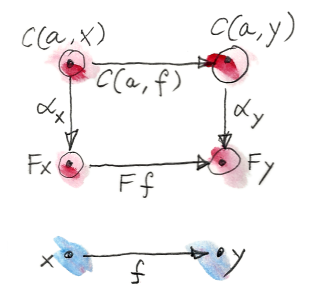 C(a, x) C(a, y)
C(a, f)
αx αy
Fx Fy
Ff
x y
f